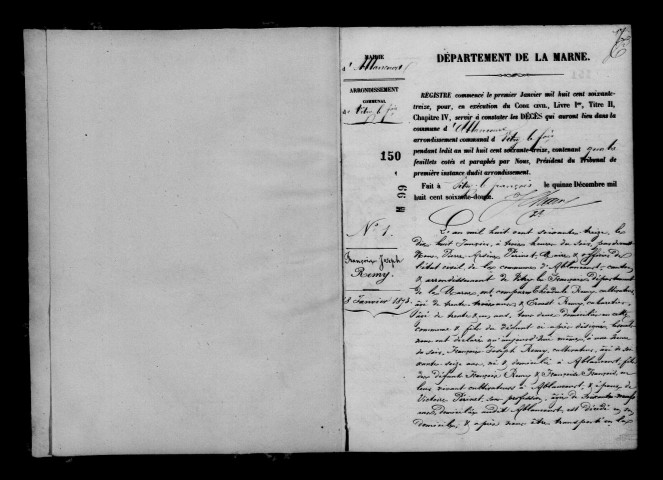 MAIRIE
d'Ablancourt
ARRONDISSEMENT
COMMUNAL
de Vitry le fois
150
M 99
N° 1.
François Joseph
Remy.
18 Janvier 1873.
DÉPARTEMENT DE LA MARNE.
REGISTRE commencé le premier Janvier mil huit cent soixante-
treize, pour, en exécution du CODE CIVIL, Livre Ier, Titre II,
Chapitre IV, servir à constater les DÉCÈS qui auront lieu dans la
commune d'Ablancourt
arrondissement communal de Vitry le fois
pendant ledit an mil huit cent soixante-treize, contenant quatre
feuillets cotés et paraphés par Nous, Président du Tribunal de
première instance dudit arrondissement.
Fait à Vitry le françois le quinze Décembre mil
huit cent soixante-douze.
L'an mil huit cent soixante treize, le
dix huit Janvier, à trois heures du soir, pardevant
Nous Pierre Perinet, Maire & officier de
l'état civil de la commune d'Ablancourt, canton
& arrondissement de Vitry le François, département
de la Marne, ont comparu Théodule Remy, cultivateur,
âgé de trente ans, & Ernest Remy, cultivateur,
âgé de trente & un ans, tous deux domiciliés en cette
commune & fils du défunt ci après désigné, lesquels
nous ont déclaré qu'aujourd'hui même, à une heure
du soir, François Joseph Remy, cultivateur, âgé de soi-
xante seize ans, né & domicilié à Ablancourt, fils
des défunts François Remy & Françoise François, en
leur vivant cultivateurs à Ablancourt, & époux de
Victoire Perinet, sans profession, âgée de soixante neuf
ans, domiciliée audit Ablancourt, est décédé en son
domicile, & après nous être transporté en la